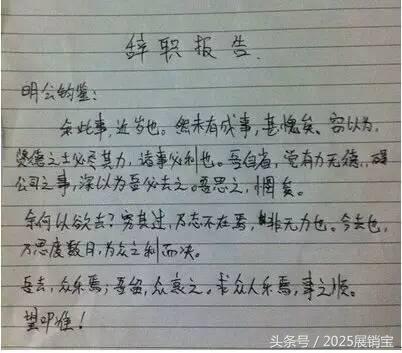 辞职报告
明公钧鉴:
余此事,近岁也。然未有成事,甚愧矣。窃以为,
贤德之士必尽其力,诸事必利也。吾自省,觉有力无德,碍
公司之事,深以为吾必去之。吾思之,惘矣。
余何以欲去?穷其过,乃志不在焉,非无力也。今去也,
乃思度数月,为众之利而决。
吾去,众乐焉;吾留,众哀之。求众人乐焉,事之顺。
望叩准!
头条号 / 2025展销宝